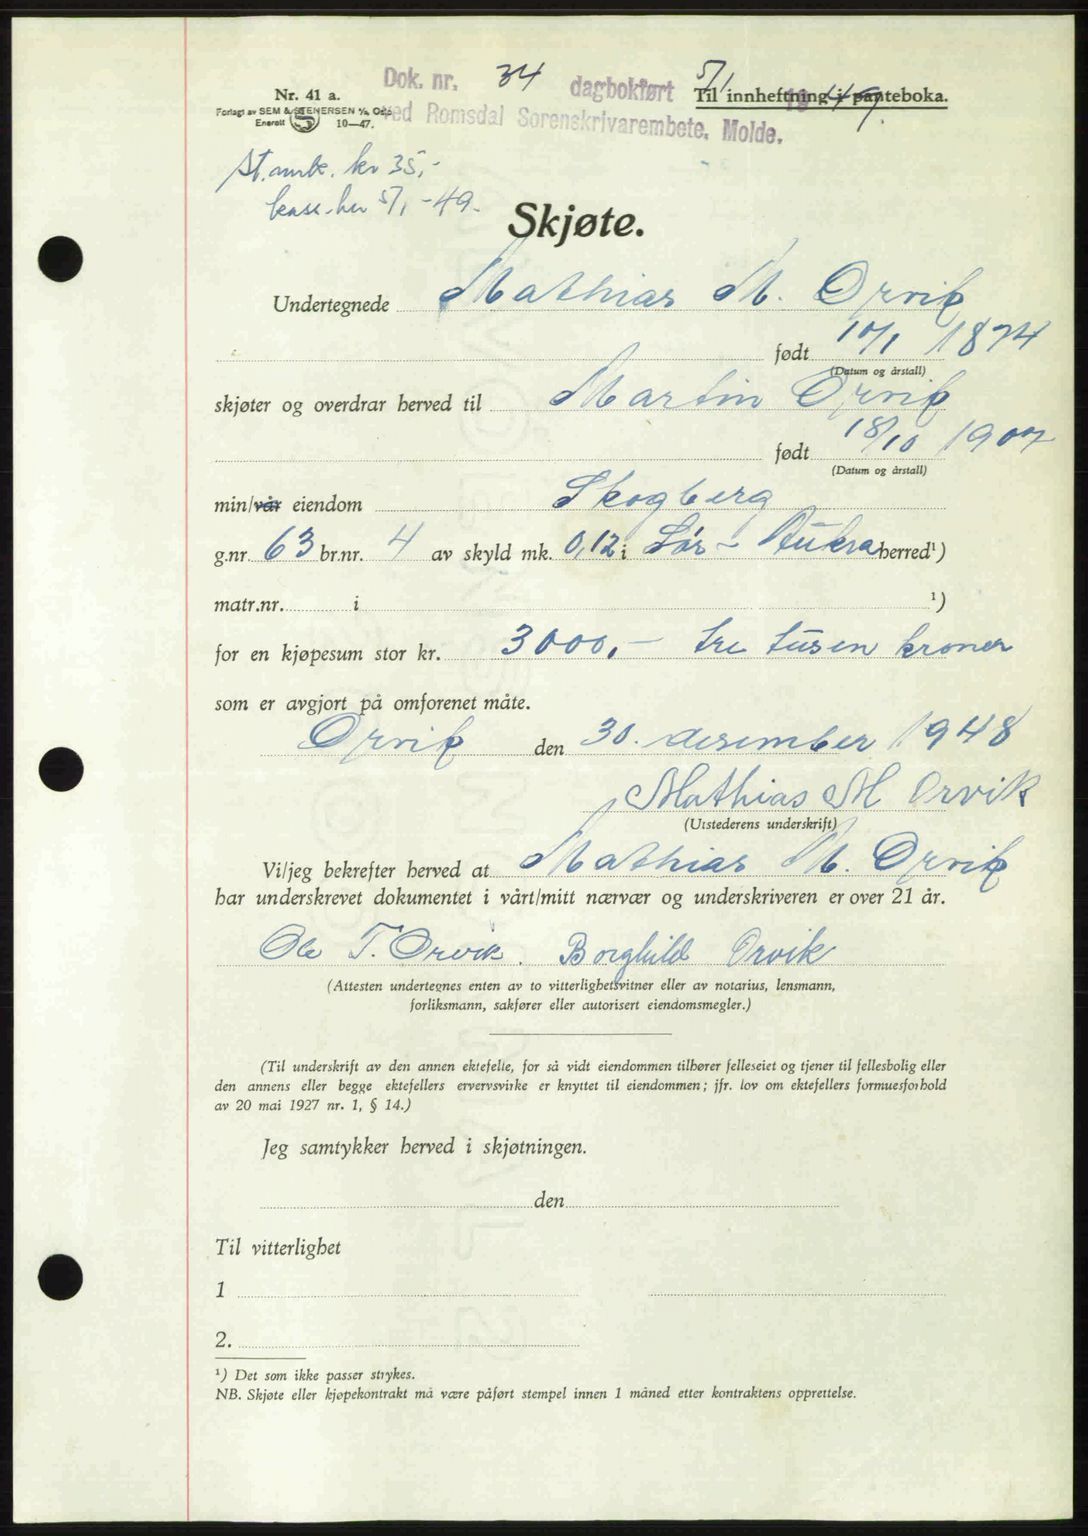 Dok. nr. 34 dagbokført 5/1 1949
ved Romsdal Sorenskrivarembete, Molde.
Nr. 41 a.
Til innheftning i panteboka.
Forlagt av SEM & STENERSEN A/S, Oslo
Enerett 10—47.
St.amk. kr 35,-
5/1 -49.
Skjøte.
Undertegnede Mathias M. Orvik
født 10/1 1874
(Datum og årstall)
skjøter og overdrar herved til Martin Orvik
født 18/10 1907
(Datum og årstall)
min/vår eiendom Skogberg
g.nr. 63 br.nr. 4 av skyld mk. 0,12 i Sør-Aukra herred¹)
matr.nr. i ¹)
for en kjøpesum stor kr. 3000,- tre tusen kroner
som er avgjort på omforenet måte.
Orvik den 30. desember 1948
Mathias M Orvik
(Utstederens underskrift)
Vi/jeg bekrefter herved at Mathias M. Orvik
har underskrevet dokumentet i vårt/mitt nærvær og underskriveren er over 21 år.
Ole T. Orvik. Borghild Orvik
(Attesten undertegnes enten av to vitterlighetsvitner eller av notarius, lensmann,
forliksmann, sakfører eller autorisert eiendomsmegler.)
(Til underskrift av den annen ektefelle, for så vidt eiendommen tilhører felleseiet og tjener til fellesbolig eller
den annens eller begge ektefellers ervervsvirke er knyttet til eiendommen; jfr. lov om ektefellers formuesforhold
av 20 mai 1927 nr. 1, § 14.)
Jeg samtykker herved i skjøtningen.
den
Til vitterlighet
1
2.
¹) Det som ikke passer strykes.
NB. Skjøte eller kjøpekontrakt må være påført stempel innen 1 måned etter kontraktens opprettelse.